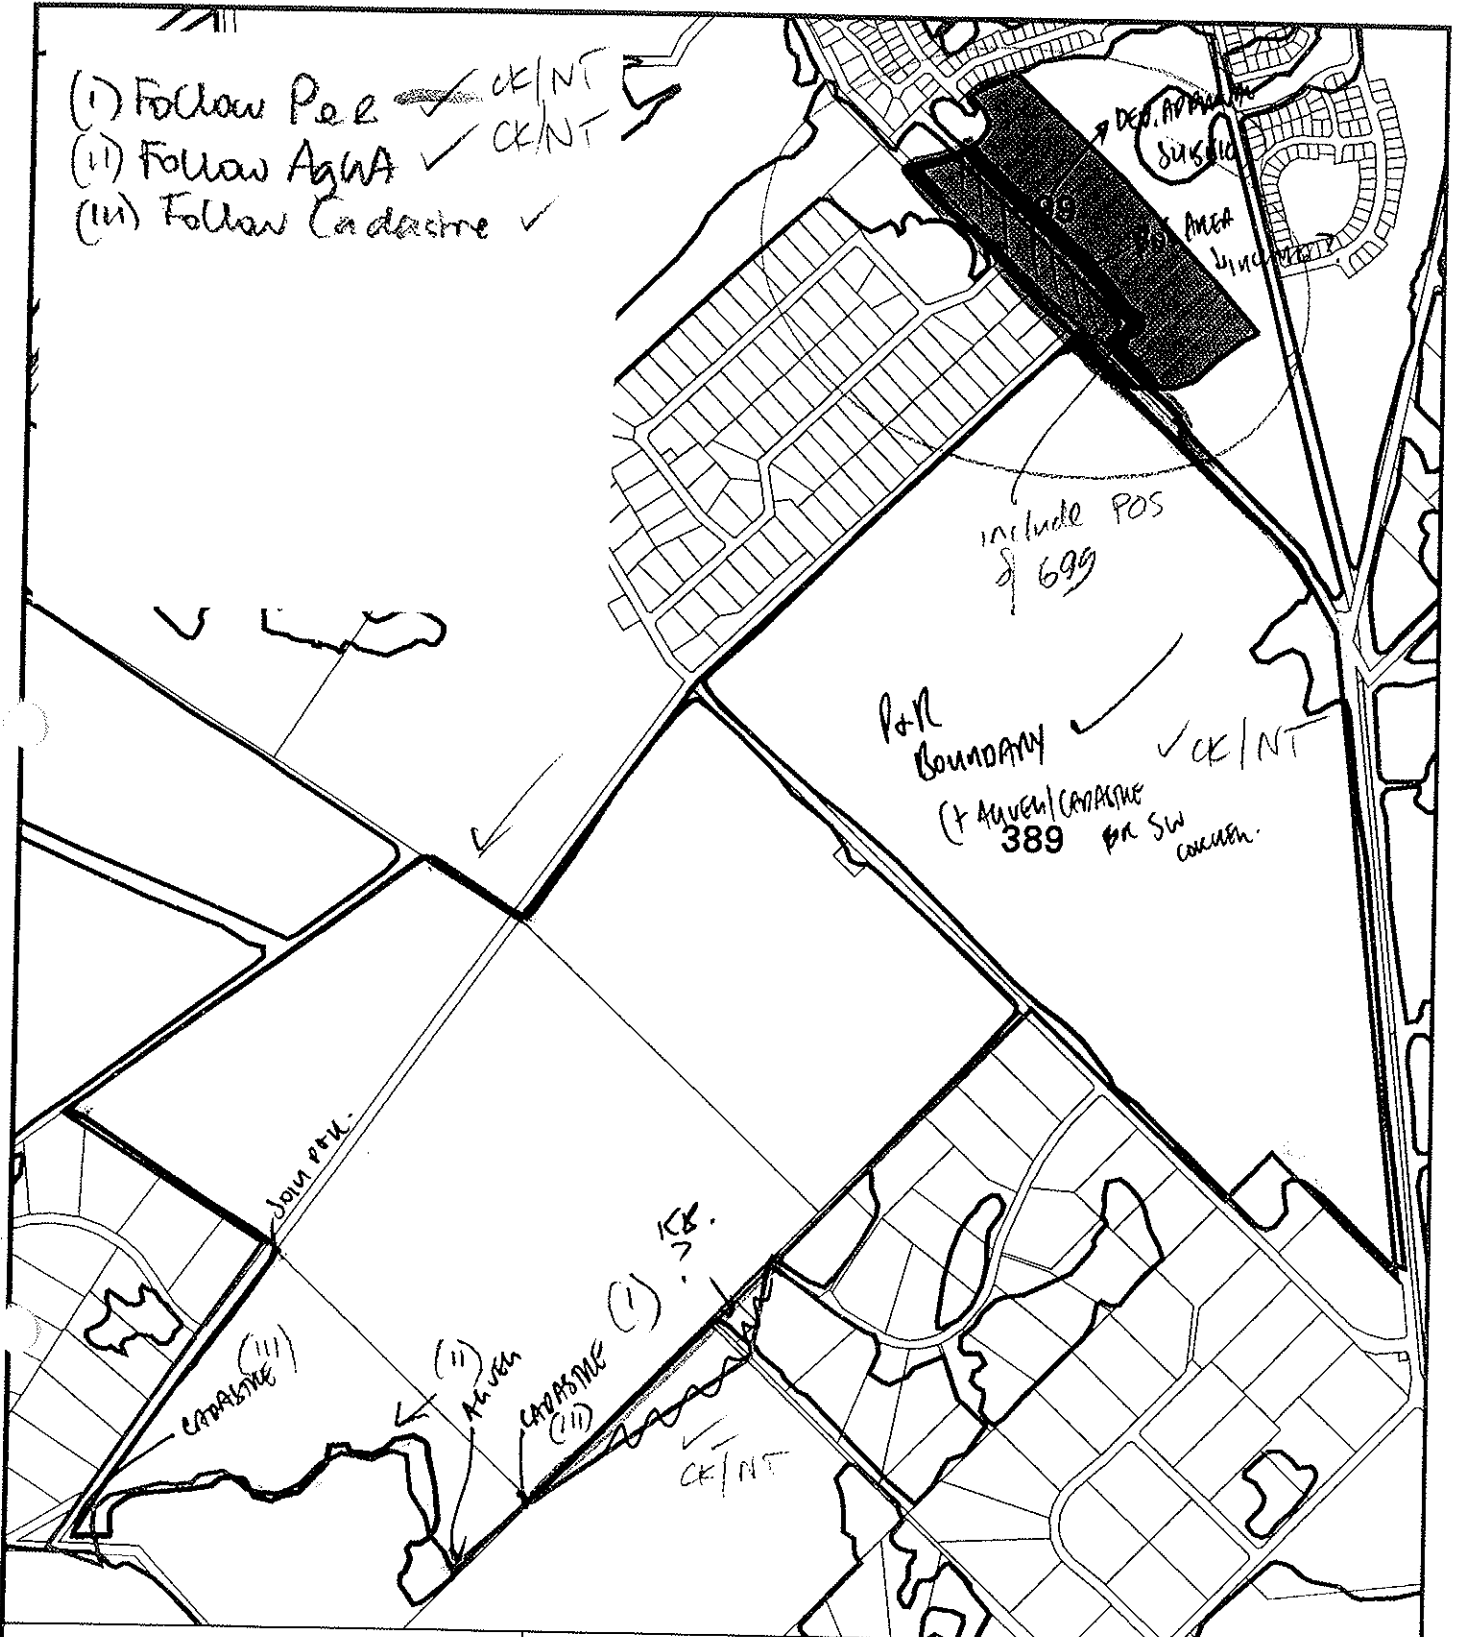 (i) Follow P&R ✓ CK/NT
(ii) Follow AgWA ✓ CK/NT
(iii) Follow Cadastre ✓
DEV. APPROVAL
AREA
include POS
of 699
P&R
BOUNDARY ✓
✓ CK/NT
(+ AGVEG/CADASTRE
389
FOR SW
CORNER.
JOIN P&R.
KB.
?
(I)
(II)
AGVEG
(III)
CADASTRE
CADASTRE
(III)
✓
CK/NT